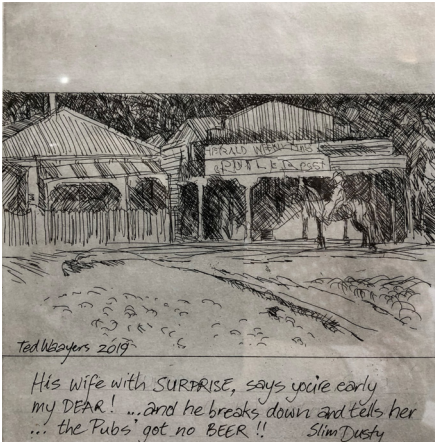 Ted Waayers 2019
His wife with SURPRISE, says you're early
my DEAR! ... and he breaks down and tells her
... the Pubs' got no BEER!! Slim Dusty